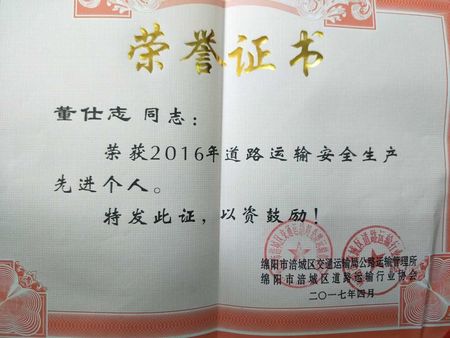 荣誉证书
董仕志 同志：
荣获2016年道路运输安全生产
先进个人。
特发此证，以资鼓励！
绵阳市涪城区交通运输局公路运输管理所
绵阳市涪城区道路运输行业协会
二〇一七年四月